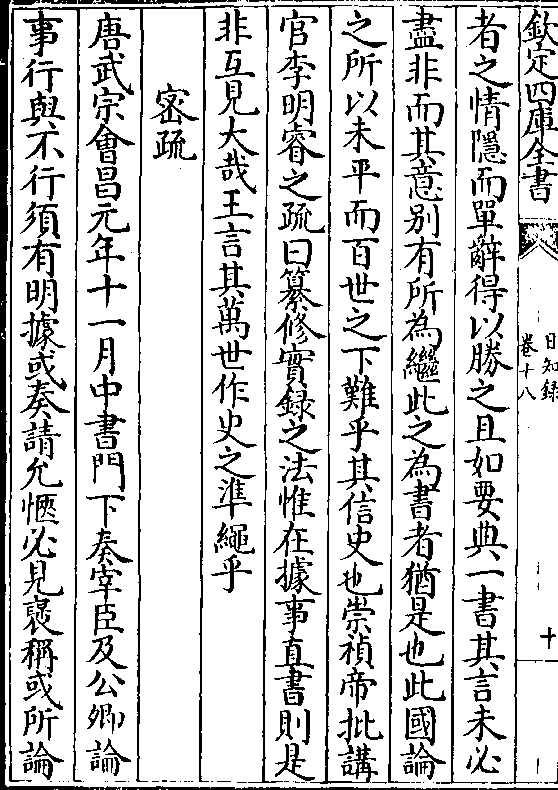 欽定四庫全書
日知錄
卷十八
十
者之情隱而單辭得以勝之且如要典一書其言未必
盡非而其意别有所為繼此之為書者猶是也此國論
之所以未平而百世之下難乎其信史也崇禎帝批講
官李明睿之疏曰纂修實録之法惟在據事直書則是
非互見大哉王言其萬世作史之準繩乎
宻疏
唐武宗會昌元年十一月中書門下奏宰臣及公卿論
事行與不行須有明據或奏請允愜必見褒稱或所論